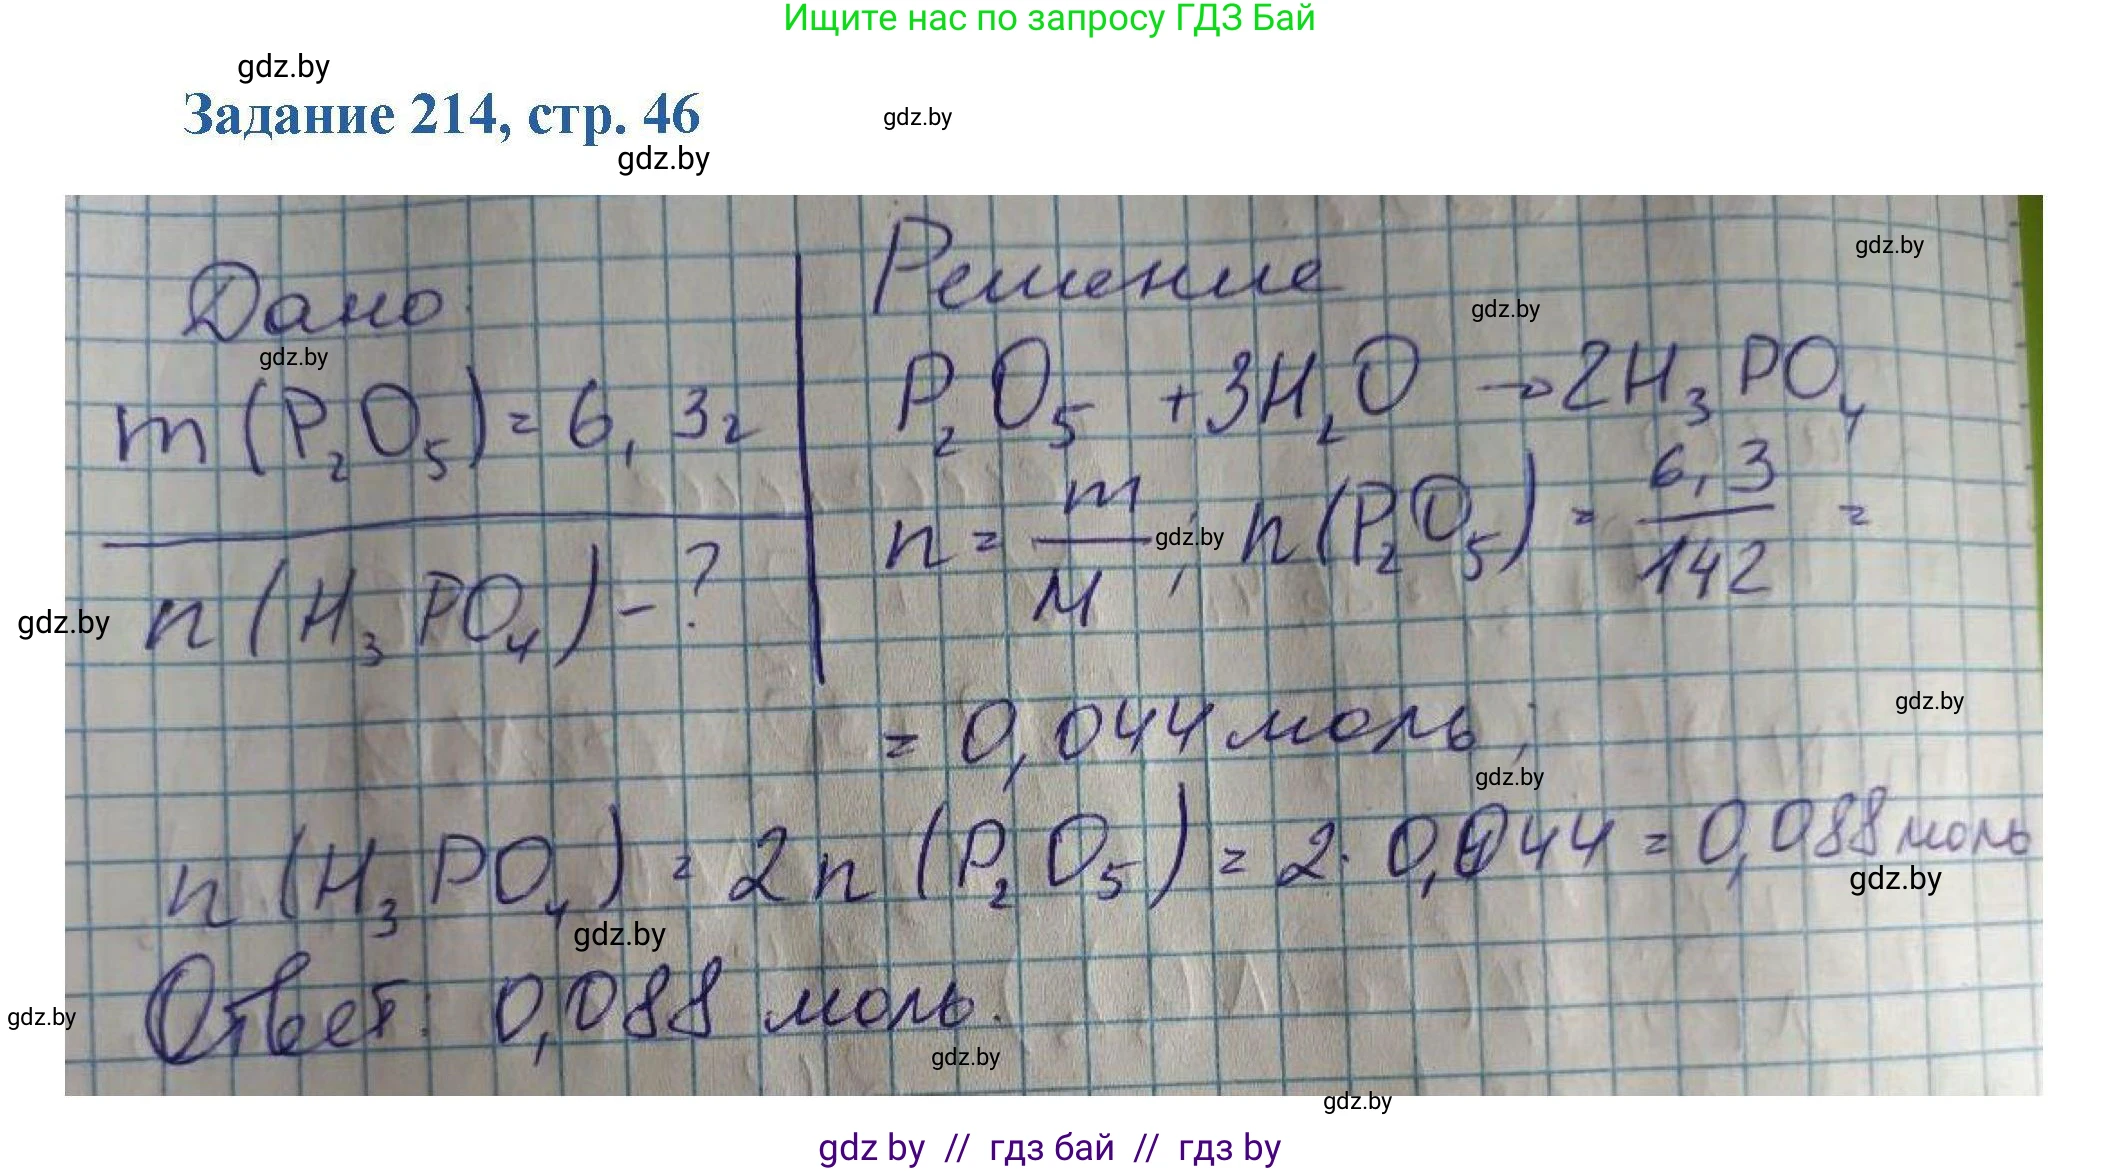 Ищите нас по запросу ГДЗ Бай
gdz.by
Задание 214, стр. 46
gdz.by
gdz.by
Решение
gdz.by
Дано:
gdz.by
gdz.by
P₂O₅ + 3H₂O → 2H₃PO₄
m(P₂O₅) = 6,3г
n = m/M; n(P₂O₅) = 6,3/142 =
gdz.by
n(H₃PO₄) - ?
gdz.by
= 0,044 моль;
gdz.by
gdz.by
n(H₃PO₄) = 2n(P₂O₅) = 2·0,044 = 0,088 моль
gdz.by
gdz.by
Ответ: 0,088 моль.
gdz.by
gdz.by
gdz.by
gdz by // гдз бай // гдз by